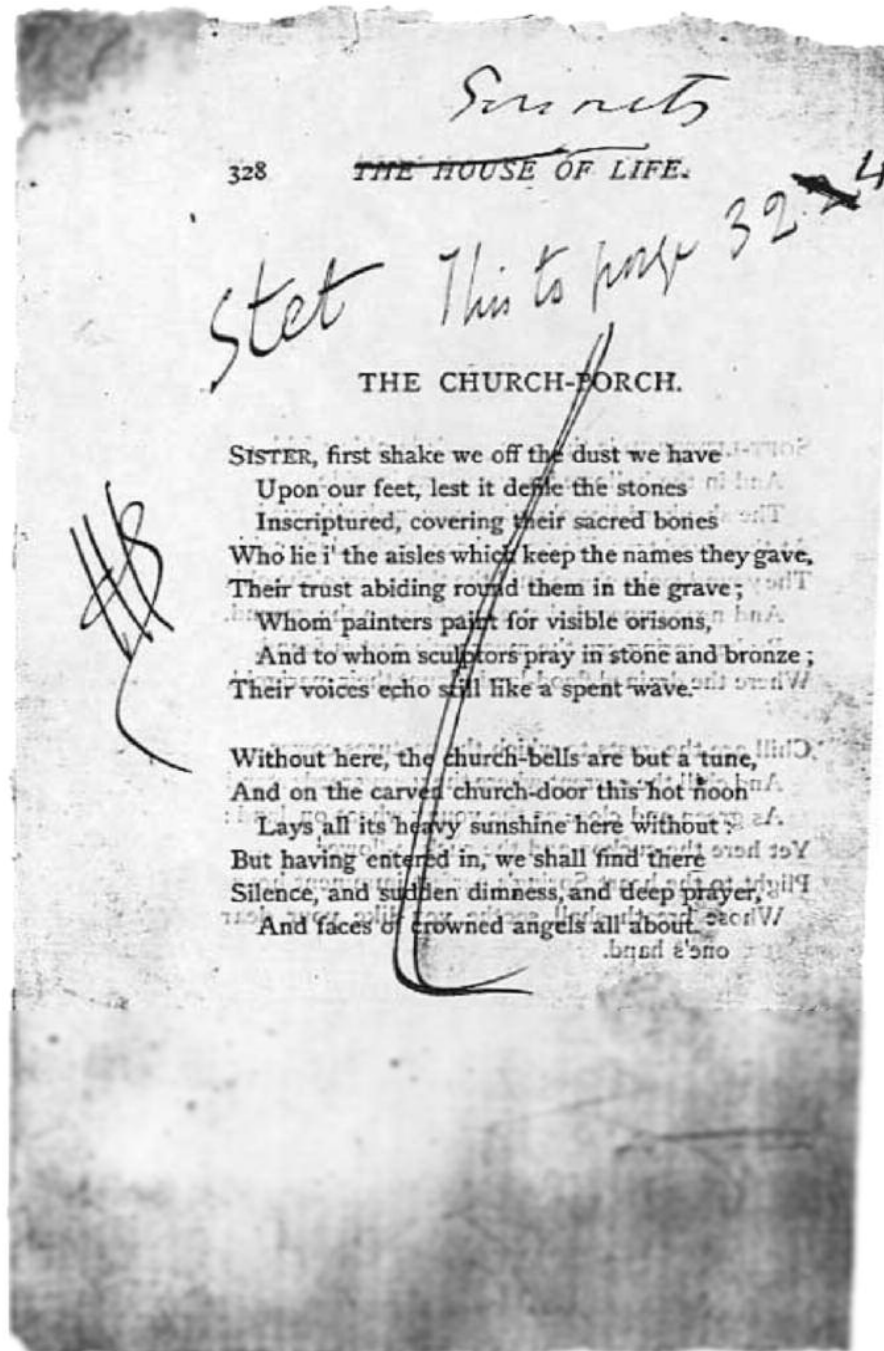 Sonnets
328 THE HOUSE OF LIFE.
Stet This to page 324
THE CHURCH-PORCH.
SISTER, first shake we off the dust we have
Upon our feet, lest it defile the stones
Inscriptured, covering their sacred bones
Who lie i' the aisles which keep the names they gave,
Their trust abiding round them in the grave;
Whom painters paint for visible orisons,
And to whom sculptors pray in stone and bronze;
Their voices echo still like a spent wave.
Without here, the church-bells are but a tune,
And on the carven church-door this hot noon
Lays all its heavy sunshine here without:
But having entered in, we shall find there
Silence, and sudden dimness, and deep prayer,
And faces of crowned angels all about.
one's hand.